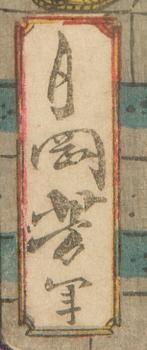 月岡芳年